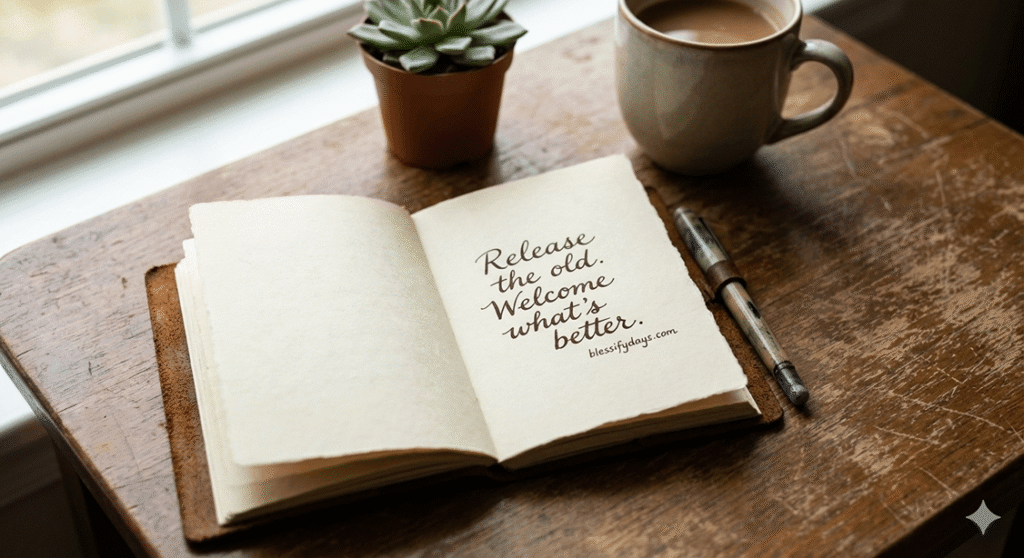 Release
the old.
Welcome
what's
better.
blessifydays.com